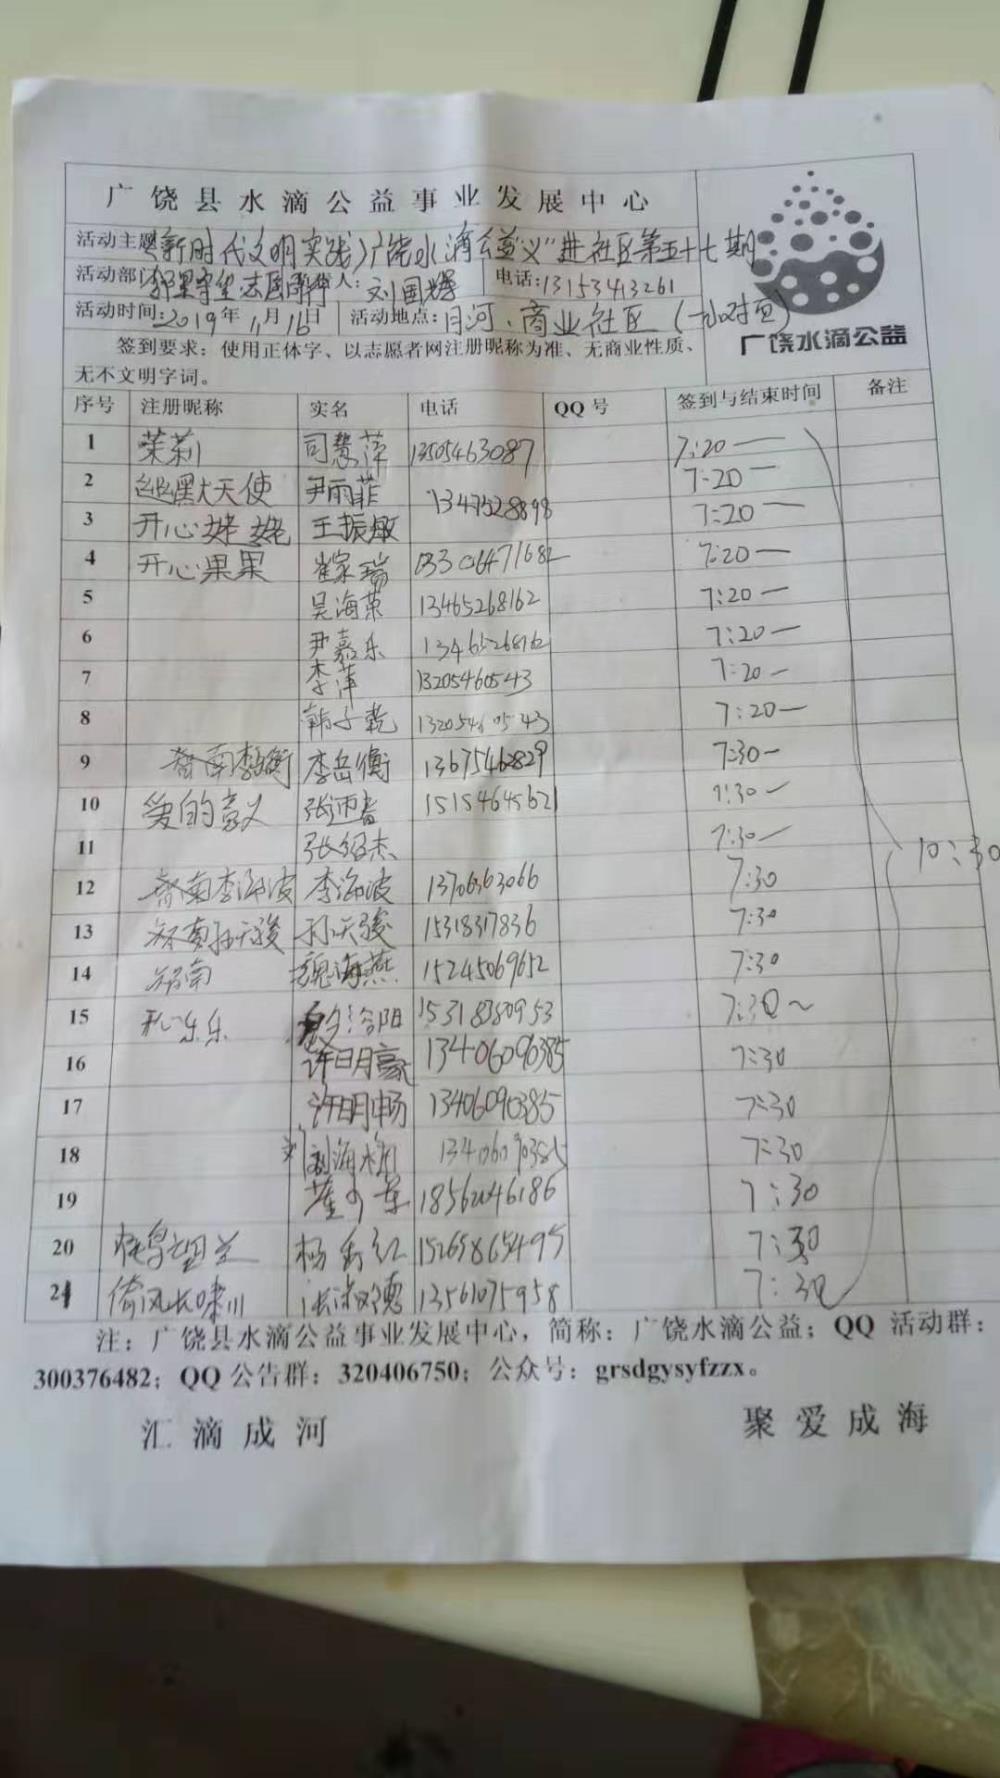 广饶县水滴公益事业发展中心
活动主题 新时代文明实践 广饶水滴公益"义"进社区第五十七期
活动部门 邻里守望志愿 人: 刘国辉 电话:13153413261
活动时间:2019年11月16日 活动地点:月河、商业社区
签到要求:使用正体字、以志愿者网注册昵称为准、无商业性质、
无不文明字词。
广饶水滴公益
序号 注册昵称 实名 电话 QQ 号 签到与结束时间 备注
1 茉莉 司慧萍 13505463087 7:20
2 幽默大天使 尹雨菲 13475288898 7:20
3 开心姥姥 王振敏 7:20
4 开心果果 崔家瑞 7:20
5 吴海荣 13465268162 7:20
6 尹嘉乐 13465268162 7:20
7 李萍 13205460543 7:20
8 韩子乾 13205460543 7:20
9 李岳衡 13675462829 7:30
10 爱的意义 15154645621 7:30
11 张绍杰 7:30
10:30
12 李海波 李海波 13706363066 7:30
13 孙天骏 孙天骏 15318317836 7:30
14 魏海燕 15245069652 7:30
15 乐乐 洛阳 15318380953 7:30
16 许明豪 13406090385 7:30
17 许明畅 13406090385 7:30
18 刘海梅 13406090385 7:30
19 18562046186 7:30
20 杨秀红 15265865495 7:30
21 倚风长啸 13561075958 7:30
注:广饶县水滴公益事业发展中心,简称:广饶水滴公益;QQ 活动群:
300376482;QQ 公告群:320406750;公众号:grsdgysyfzzx。
汇滴成河 聚爱成海